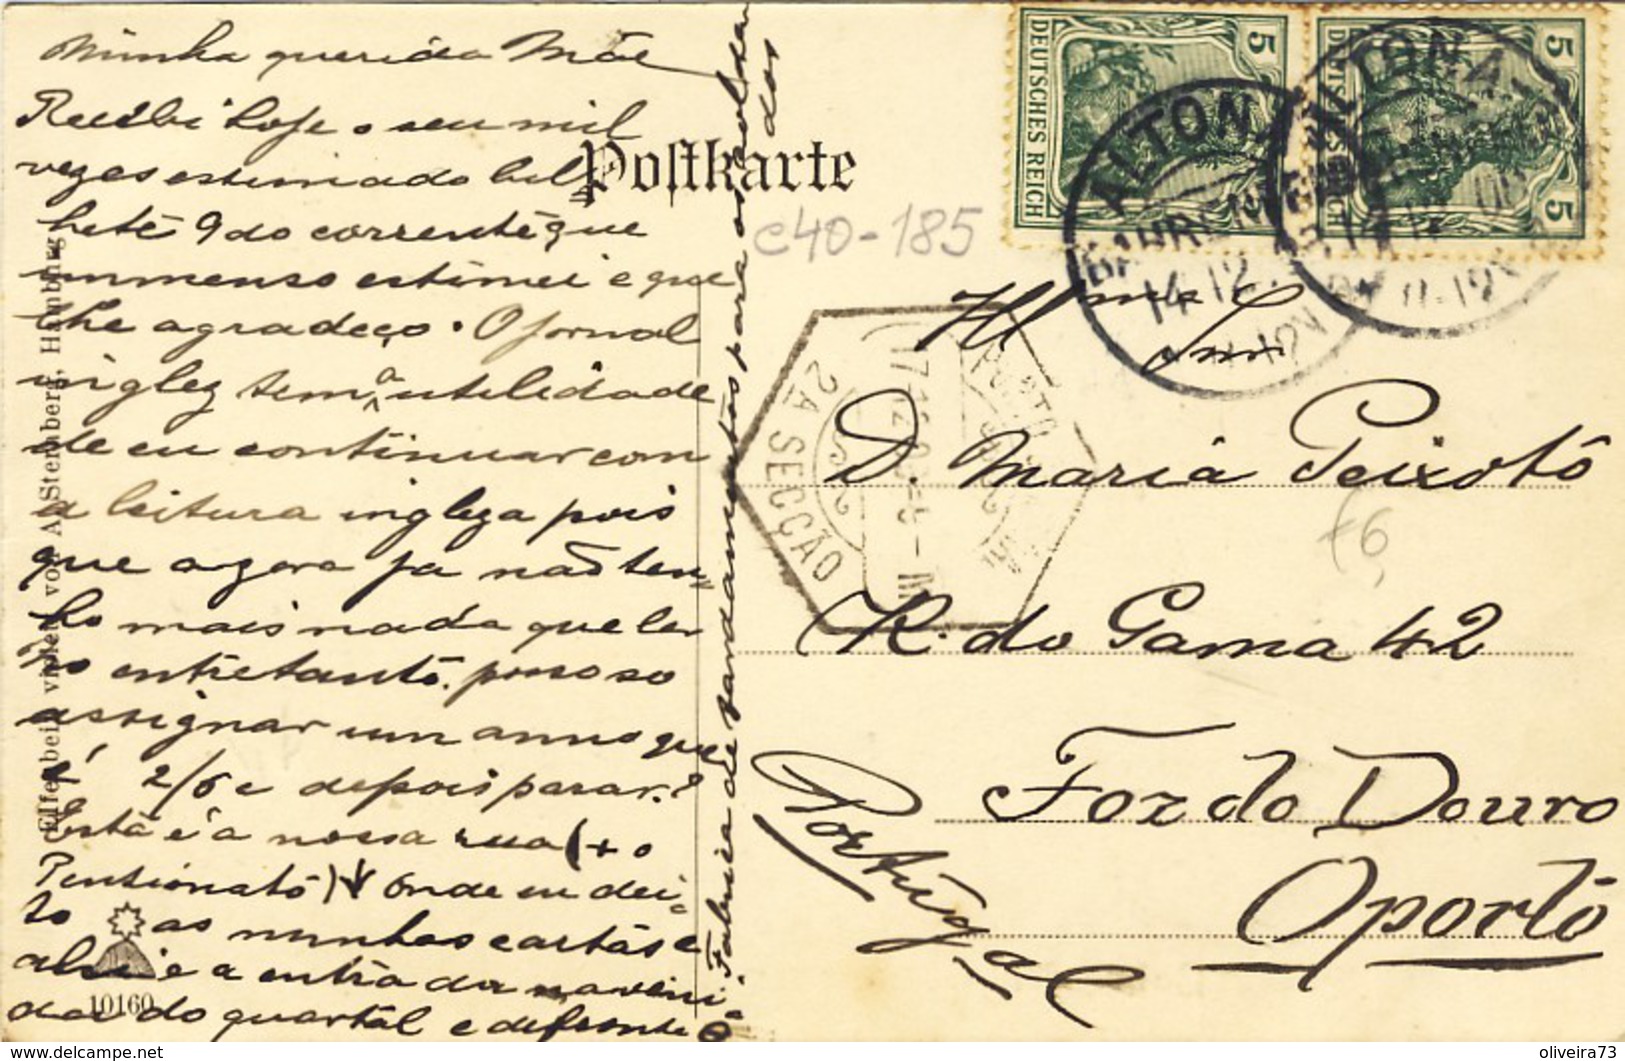 Minha querida Mãe
Recebi hoje o seu mil
vezes estimado bil-
hete 9 do corrente que
immenso estimei e que
lhe agradeço. O jornal
inglez tem a utilidade
de eu continuar com
a leitura ingleza pois
que agora ja não ten-
ho mais nada que ler
no entretanto. posso so
assignar um anno que
é 2/6 e depois parar?
Esta é a nossa rua (+ o
Pentionato) onde eu dei-
to as minhas cartas e
ahi e a entra da aveni-
da do quartel e defronte a
Fabrica de fardamentos para os solda
dos
Postkarte
DEUTSCHES REICH
5
5
5
ALTONA
BAHRENFELD
14.12.
c40-185
PORTO
2A SECÇÃO
Illma Snra
D. Maria Peixoto
R. do Gama 42
Foz do Douro
Oporto
Portugal
Elfenbein
A. Sternberg, Hamburg
10160
oliveira73